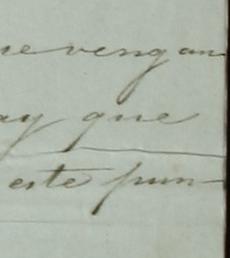 ue vengan
ay que
este pun-